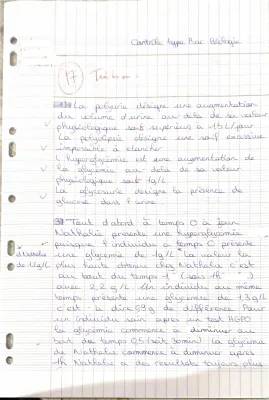 Contrôle type Bac Biologie
17 Très bien
1) La polyurie désigne une augmentation
du volume d'urine au delà de sa valeur
physiologique soit supérieur à 1,5 L/jour
La polydipsie désigne une soif excessive
impossible à étancher
L'hyperglycémie est une augmentation de
la glycémie au delà de sa valeur
physiologique soit 1g/L
La glycosurie désigne la présence de
glucose dans l'urine
Tout d'abord à temps 0 à jeun
Nathalie présente une hyperglycémie
puisque l'individu a temps 0 présente
une glycémie de 1g/L la valeur la
plus haute obtenue chez Nathalie c'est
au bout du temps 1 (soit 1h)
avec 2,2 g/L Un individu au même
temps présente une glycémie de 1,3 g/L
c'est à dire 0,9 g de différence Pour
un individu sain après un test HGPO
la glycémie commence à diminuer au
bout de temps 0,5 (soit 30min) la glycémie
de Nathalie commence à diminuer après
1h Nathalie a des résultats toujours plus